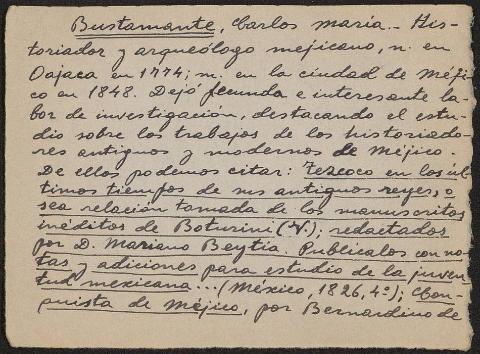 Bustamante, Carlos María.- His-
toriador y arqueólogo mejicano, n. en
Oajaca en 1774; m. en la ciudad de Méji-
co en 1848. Dejó fecunda e interesante la-
bor de investigación, destacando el estu-
dio sobre los trabajos de los historiado-
res antiguos y modernos de Méjico.
De ellos podemos citar: Tezcoco en los úl-
timos tiempos de sus antiguos reyes, o
sea relación tomada de los manuscritos
inéditos de Boturini (V.); redactados
por D. Mariano Beytia. Publícalos con no-
tas y adiciones para estudio de la juven-
tud mexicana... (México, 1826, 4º); Con-
quista de Méjico, por Bernardino de